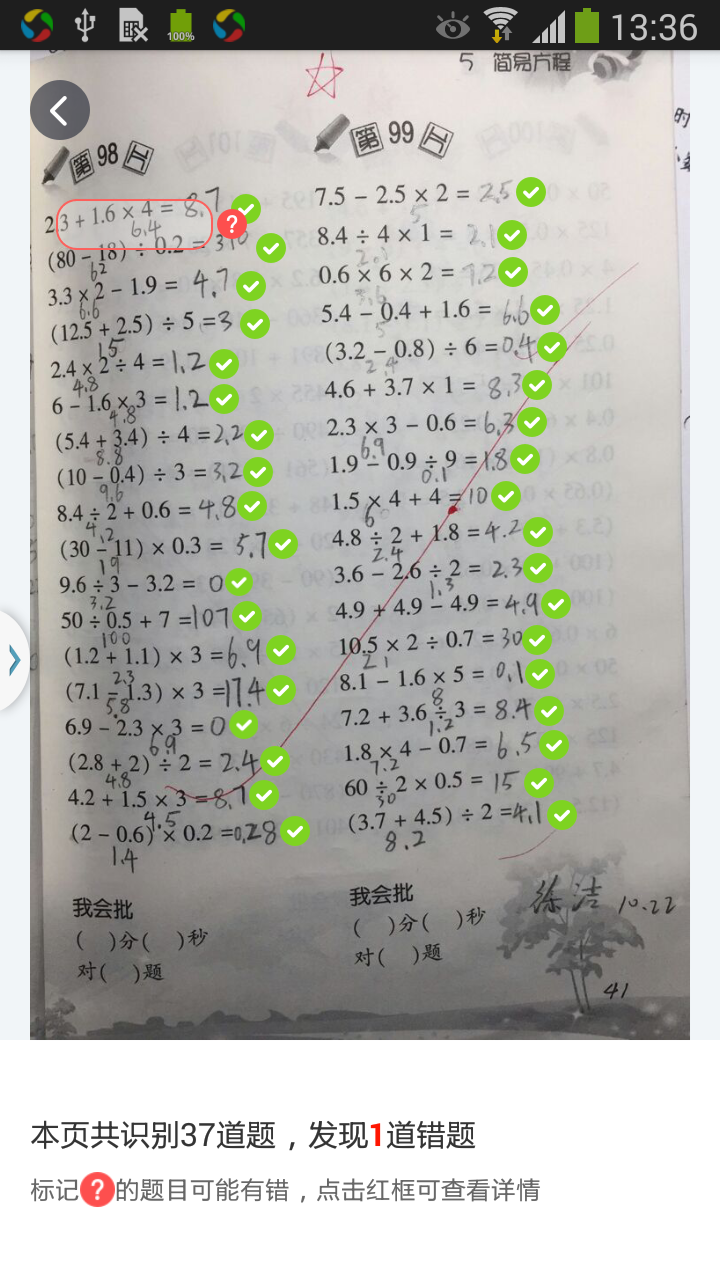 100%
13:36
5 简易方程
第98天
2.3 + 1.6 × 4 = 8.7
6.4
(80 - 18) ÷ 0.2 = 310
62
3.3 × 2 - 1.9 = 4.7
6.6
(12.5 + 2.5) ÷ 5 = 3
15
2.4 × 2 ÷ 4 = 1.2
4.8
6 - 1.6 × 3 = 1.2
4.8
(5.4 + 3.4) ÷ 4 = 2.2
8.8
(10 - 0.4) ÷ 3 = 3.2
9.6
8.4 ÷ 2 + 0.6 = 4.8
4.2
(30 - 11) × 0.3 = 5.7
19
9.6 ÷ 3 - 3.2 = 0
3.2
50 ÷ 0.5 + 7 = 107
100
(1.2 + 1.1) × 3 = 6.9
2.3
(7.1 - 1.3) × 3 = 17.4
5.8
6.9 - 2.3 × 3 = 0
6.9
(2.8 + 2) ÷ 2 = 2.4
4.8
4.2 + 1.5 × 3 = 8.7
4.5
(2 - 0.6) × 0.2 = 0.28
1.4
我会批
( )分( )秒
对( )题
第99天
7.5 - 2.5 × 2 = 2.5
5
8.4 ÷ 4 × 1 = 2.1
2.1
0.6 × 6 × 2 = 7.2
3.6
5.4 - 0.4 + 1.6 = 6.6
5
(3.2 - 0.8) ÷ 6 = 0.4
2.4
4.6 + 3.7 × 1 = 8.3
2.3 × 3 - 0.6 = 6.3
6.9
1.9 - 0.9 ÷ 9 = 1.8
0.1
1.5 × 4 + 4 = 10
6
4.8 ÷ 2 + 1.8 = 4.2
2.4
3.6 - 2.6 ÷ 2 = 2.3
1.3
4.9 + 4.9 - 4.9 = 4.9
10.5 × 2 ÷ 0.7 = 30
21
8.1 - 1.6 × 5 = 0.1
8
7.2 + 3.6 ÷ 3 = 8.4
1.2
1.8 × 4 - 0.7 = 6.5
7.2
60 ÷ 2 × 0.5 = 15
30
(3.7 + 4.5) ÷ 2 = 4.1
8.2
我会批
( )分( )秒
对( )题
徐洁 10.22
41
本页共识别37道题，发现1道错题
标记?的题目可能有错，点击红框可查看详情